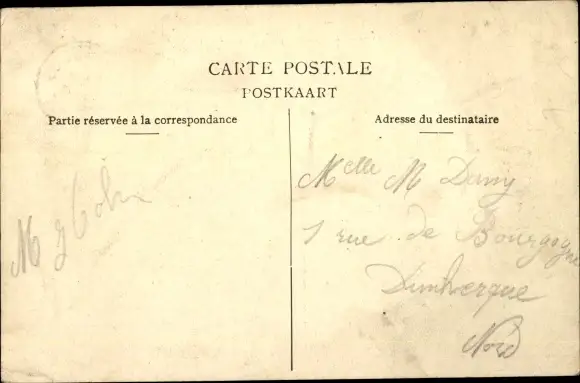 CARTE POSTALE
POSTKAART
Partie réservée à la correspondance
Adresse du destinataire
Melle M Dany
1 rue de Bourgogne
Dunkerque
Nord
M